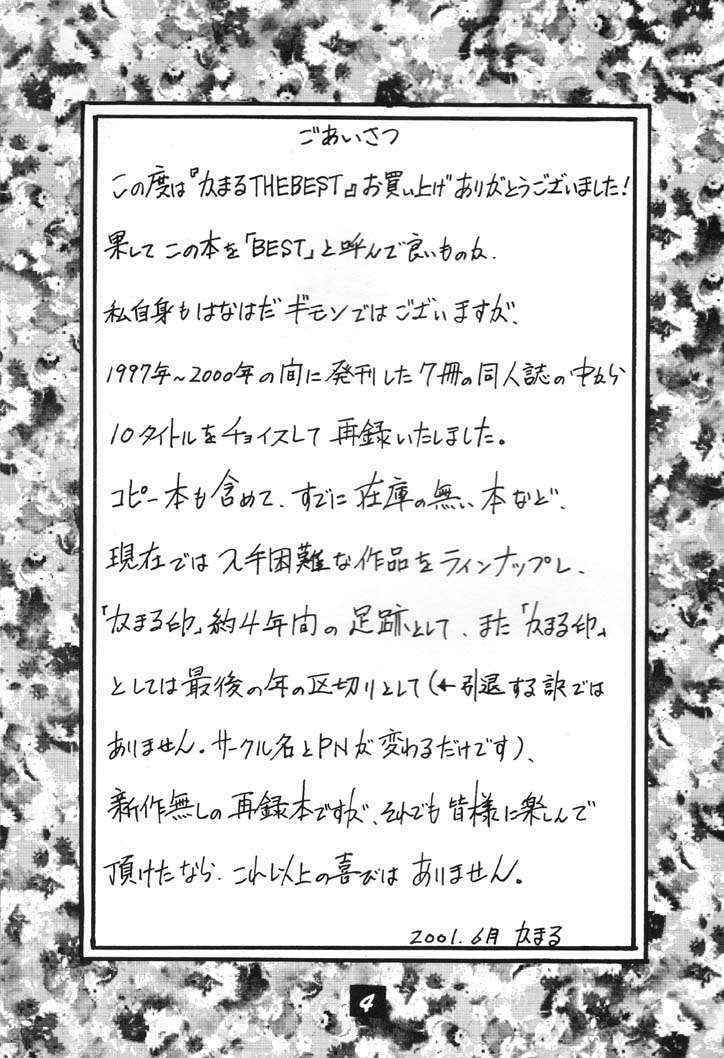 ごあいさつ
この度は『かまるTHEBEST』お買い上げありがとうございました!
果してこの本を「BEST」と呼んで良いものか、
私自身もはなはだギモンではございますが、
1997年~2000年の間に発刊した7冊の同人誌の中から
10タイトルをチョイスして再録いたしました。
コピー本も含めて、すでに在庫の無い本など、
現在では入手困難な作品をラインナップし、
「かまる印」約4年間の足跡として、また「かまる印」
としては最後の年の区切りとして(←引退する訳では
ありません。サークル名とPNが変わるだけです)、
新作無しの再録本ですが、それでも皆様に楽しんで
頂けたなら、これ以上の喜びはありません。
2001.6月 かまる
4